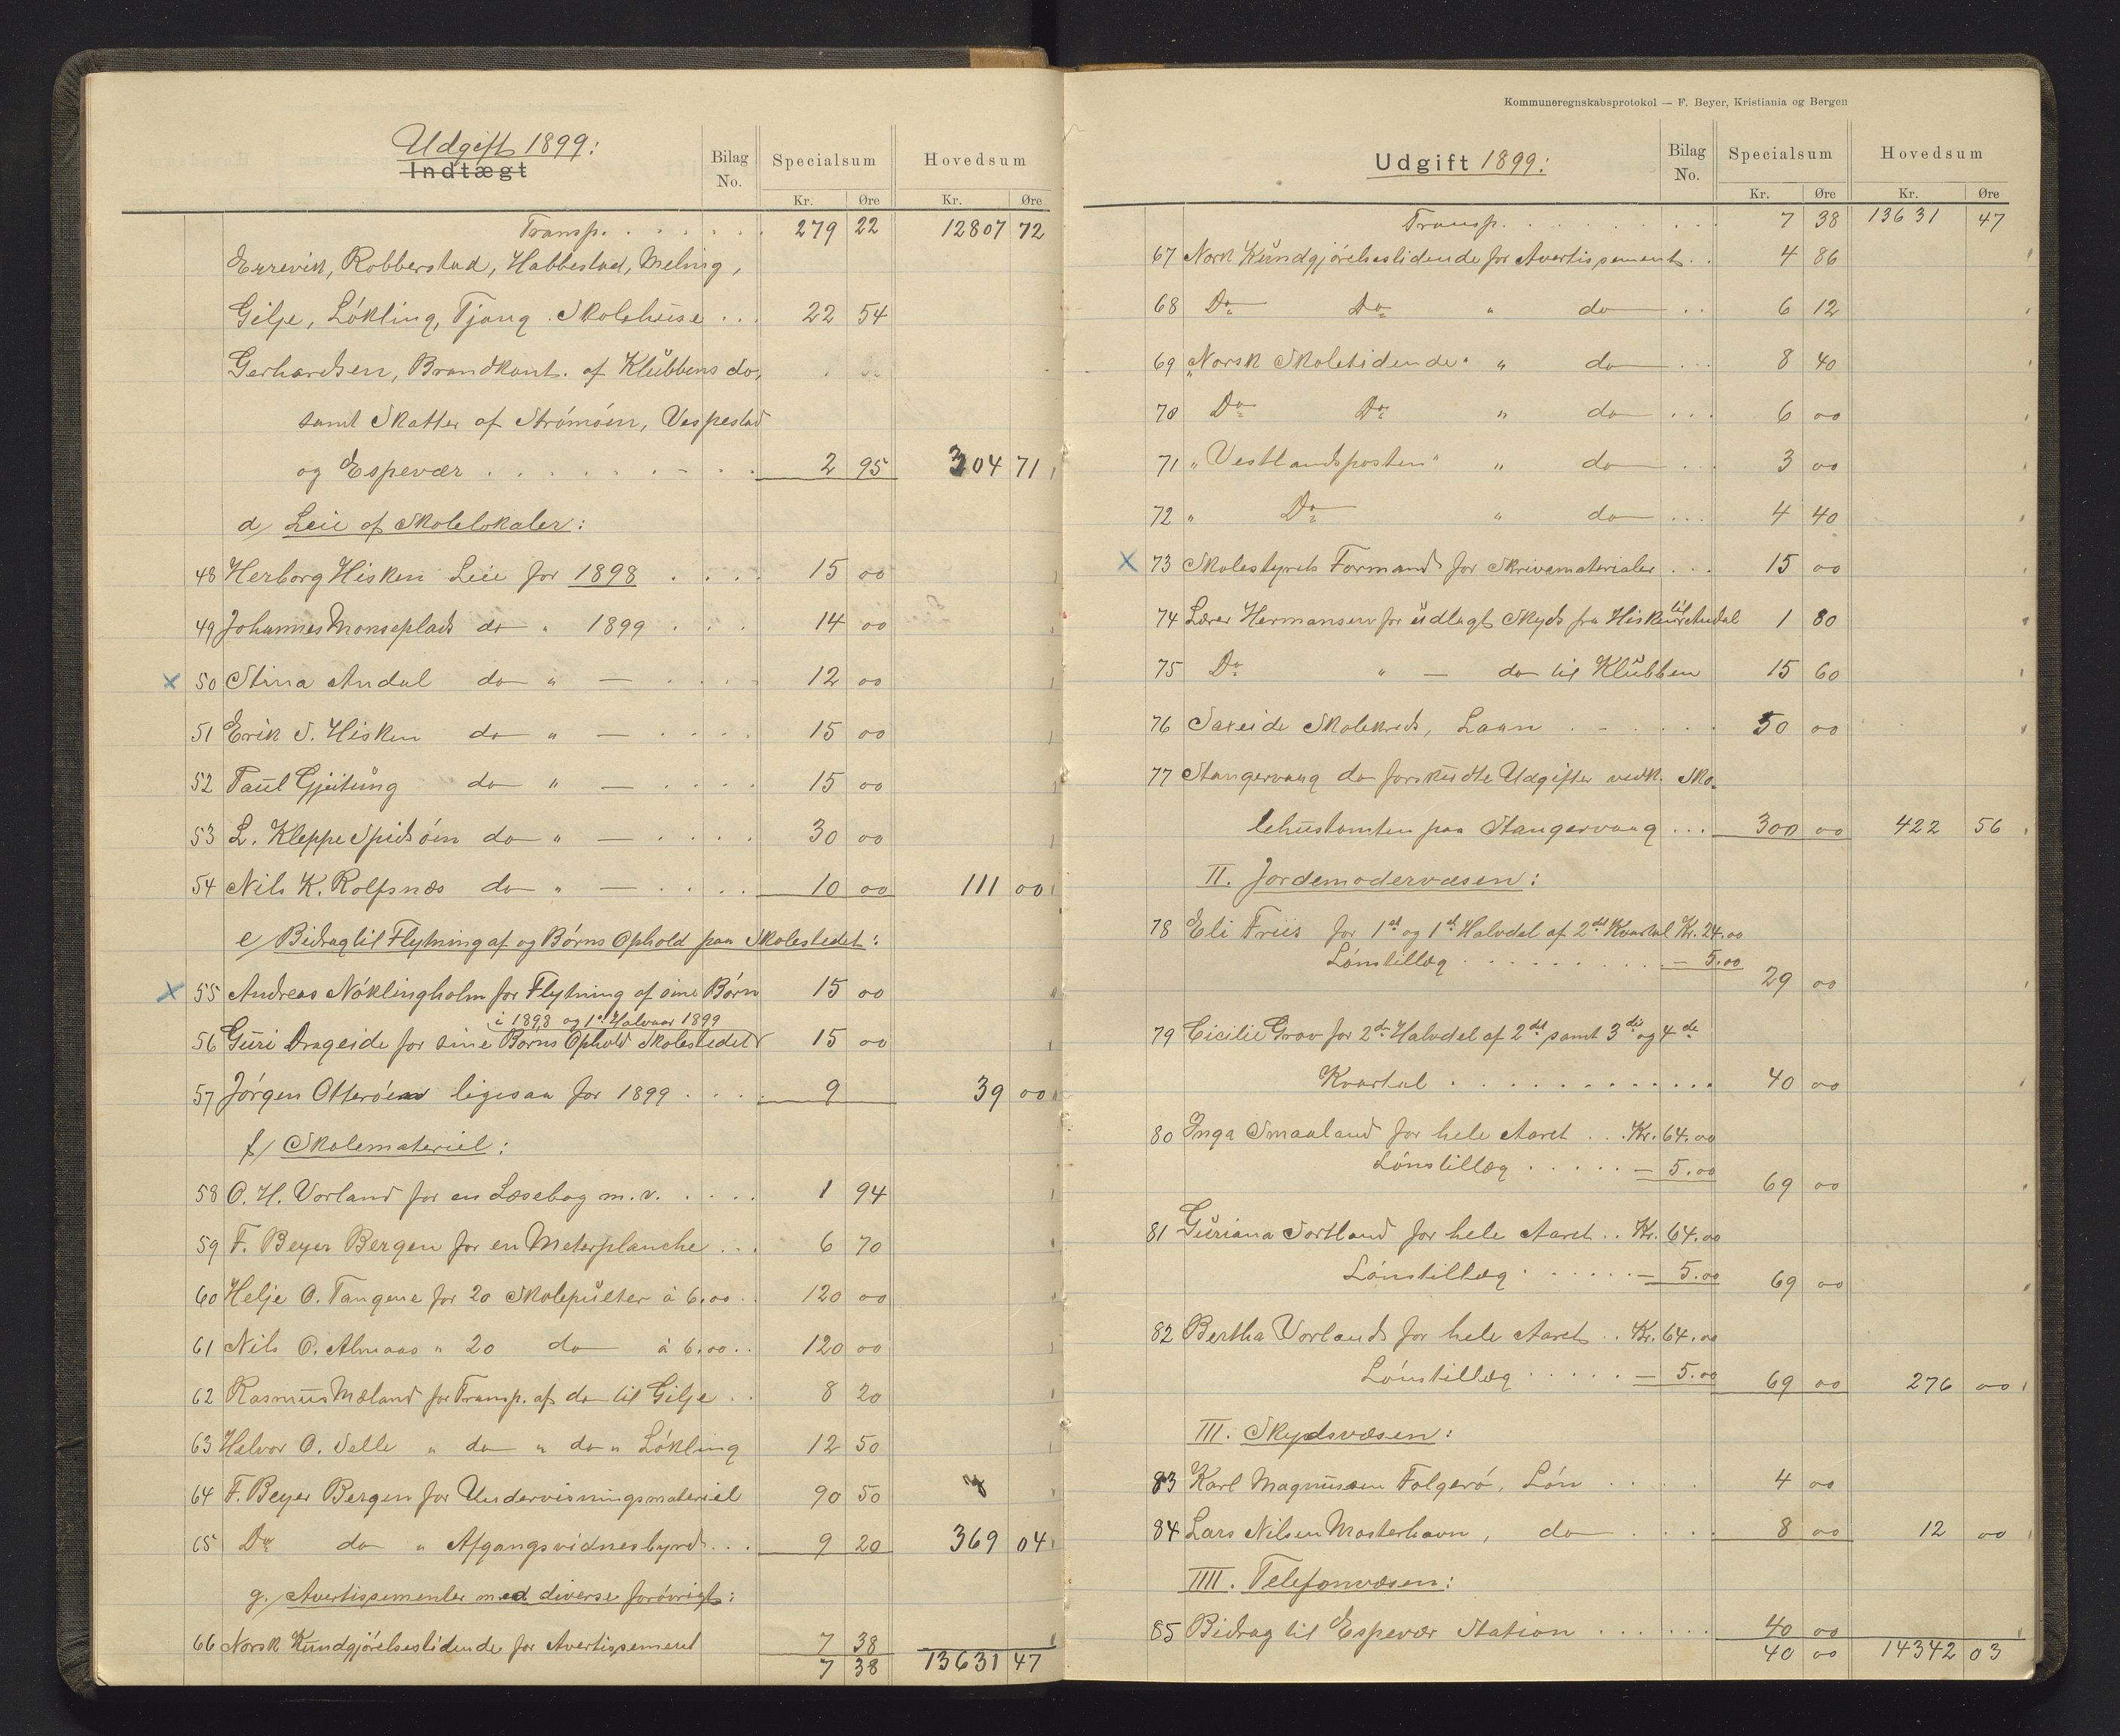 Udgift 1899:
Indtægt
Bilag No. Specialsum Hovedsum
Kr. Øre Kr. Øre
Transp. . . . . . . 279 22 12807 72
Eurevik, Robberstad, Habbestad, Meling,
Gilje, Løkling, Tjong Skolehuse . . . 22 54
Gerhardsen, Brandkont. af Klubbens do,
samt Skatter af Strømøen, Vespestad
og Espevær . . . . . . . . . 2 95 304 71
d/ Leie af Skolelokaler:
48 Herborg Hisken Leie for 1898 . . . . 15 00
49 Johannes Monseplads do " 1899 . . . 14 00
x 50 Stina Andal do " — . . . . 12 00
51 Erik S. Hisken do " — . . . . 15 00
52 Paul Gjeitung do " — . . . . 15 00
53 L. Kleppe Spidsøen do " — . . . . 30 00
54 Nils K. Rolfsnæs do " — . . . . 10 00 111 00
e/ Bidrag til Flytning af og Børns Ophold paa Skolestedet:
x 55 Andreas Nøklingholm for Flytning af sine Børn 15 00
i 1898 og 1ste Halvaar 1899
56 Guri Drageide for sine Børns Ophold Skolestedet 15 00
57 Jørgen Otterøen ligesaa for 1899 . . . . 9 39 00
f/ Skolemateriel:
58 O. H. Vorland for en Læsebog m. v. . . . . 1 94
59 F. Beyer Bergen for en Meterplanche . . . 6 70
60 Helje O. Tangene for 20 Skolepulter à 6.00 . . 120 00
61 Nils O. Almaas " 20 do à 6.00 . . 120 00
62 Rasmus Mæland for Transp. af do til Gilje . . 8 20
63 Halvor O. Selle " do " do " Løkling 12 50
64 F. Beyer Bergen for Undervisningsmateriel 90 50
65 Do do " Afgangsvidnesbyrd . . . 9 20 369 04
g./ Avertissementer med diverse forøvrigt:
66 Norsk Kundgjørelsestidende for Avertissement 7 38
7 38 13631 47
Kommuneregnskabsprotokol — F. Beyer, Kristiania og Bergen
Udgift 1899:
Bilag No. Specialsum Hovedsum
Kr. Øre Kr. Øre
Transp. . . . . . . . . 7 38 13631 47
67 Norsk Kundgjørelsestidende for Avertissement . . 4 86
68 Do Do " do . . 6 12
69 "Norsk Skoletidende" " do . . . 8 40
70 Do Do " do . . . 6 00
71 "Vestlandsposten" " do . . . 3 00
72 " Do " do . . . 4 40
x 73 Skolestyrets Formand for Skrivematerialer . . . 15 00
74 Lærer Hermansen for udlagt Skyds fra Hisken til Andal 1 80
75 Do " — do til Klubben 15 60
76 Saxeide Skolekreds, Laan . . . . . 50 00
77 Stangervaag do forskudte Udgifter vedk. Sko-
lehustomten paa Stangervaag . . . 300 00 422 56
II. Jordemodervæsen:
78 Eli Friis for 1st og 1st Halvdel af 2det Kvartal Kr. 24.00
Lønstillæg . . . . . . . . . — 5.00
29 00
79 Cicilie Grov for 2de Halvdel af 2det samt 3die og 4de
Kvartal . . . . . . . . . . . . 40 00
80 Inga Smaaland for hele Aaret . . . Kr. 64.00
Lønstillæg . . . . . — 5.00
69 00
81 Guriana Sortland for hele Aaret . . Kr. 64.00
Lønstillæg . . . . . . — 5.00 69 00
82 Bertha Vorland for hele Aaret . . Kr. 64.00
Lønstillæg . . . . . — 5.00 69 00 276 00
III. Skydsvæsen:
83 Karl Magnussen Folgerø, Løn . . . . 4 00
84 Lars Nilsen Mosterhavn, do . . . . 8 00 12 00
IIII. Telefonvæsen:
85 Bidrag til Espevær Station . . . . . . 40 00
40 00 14342 03